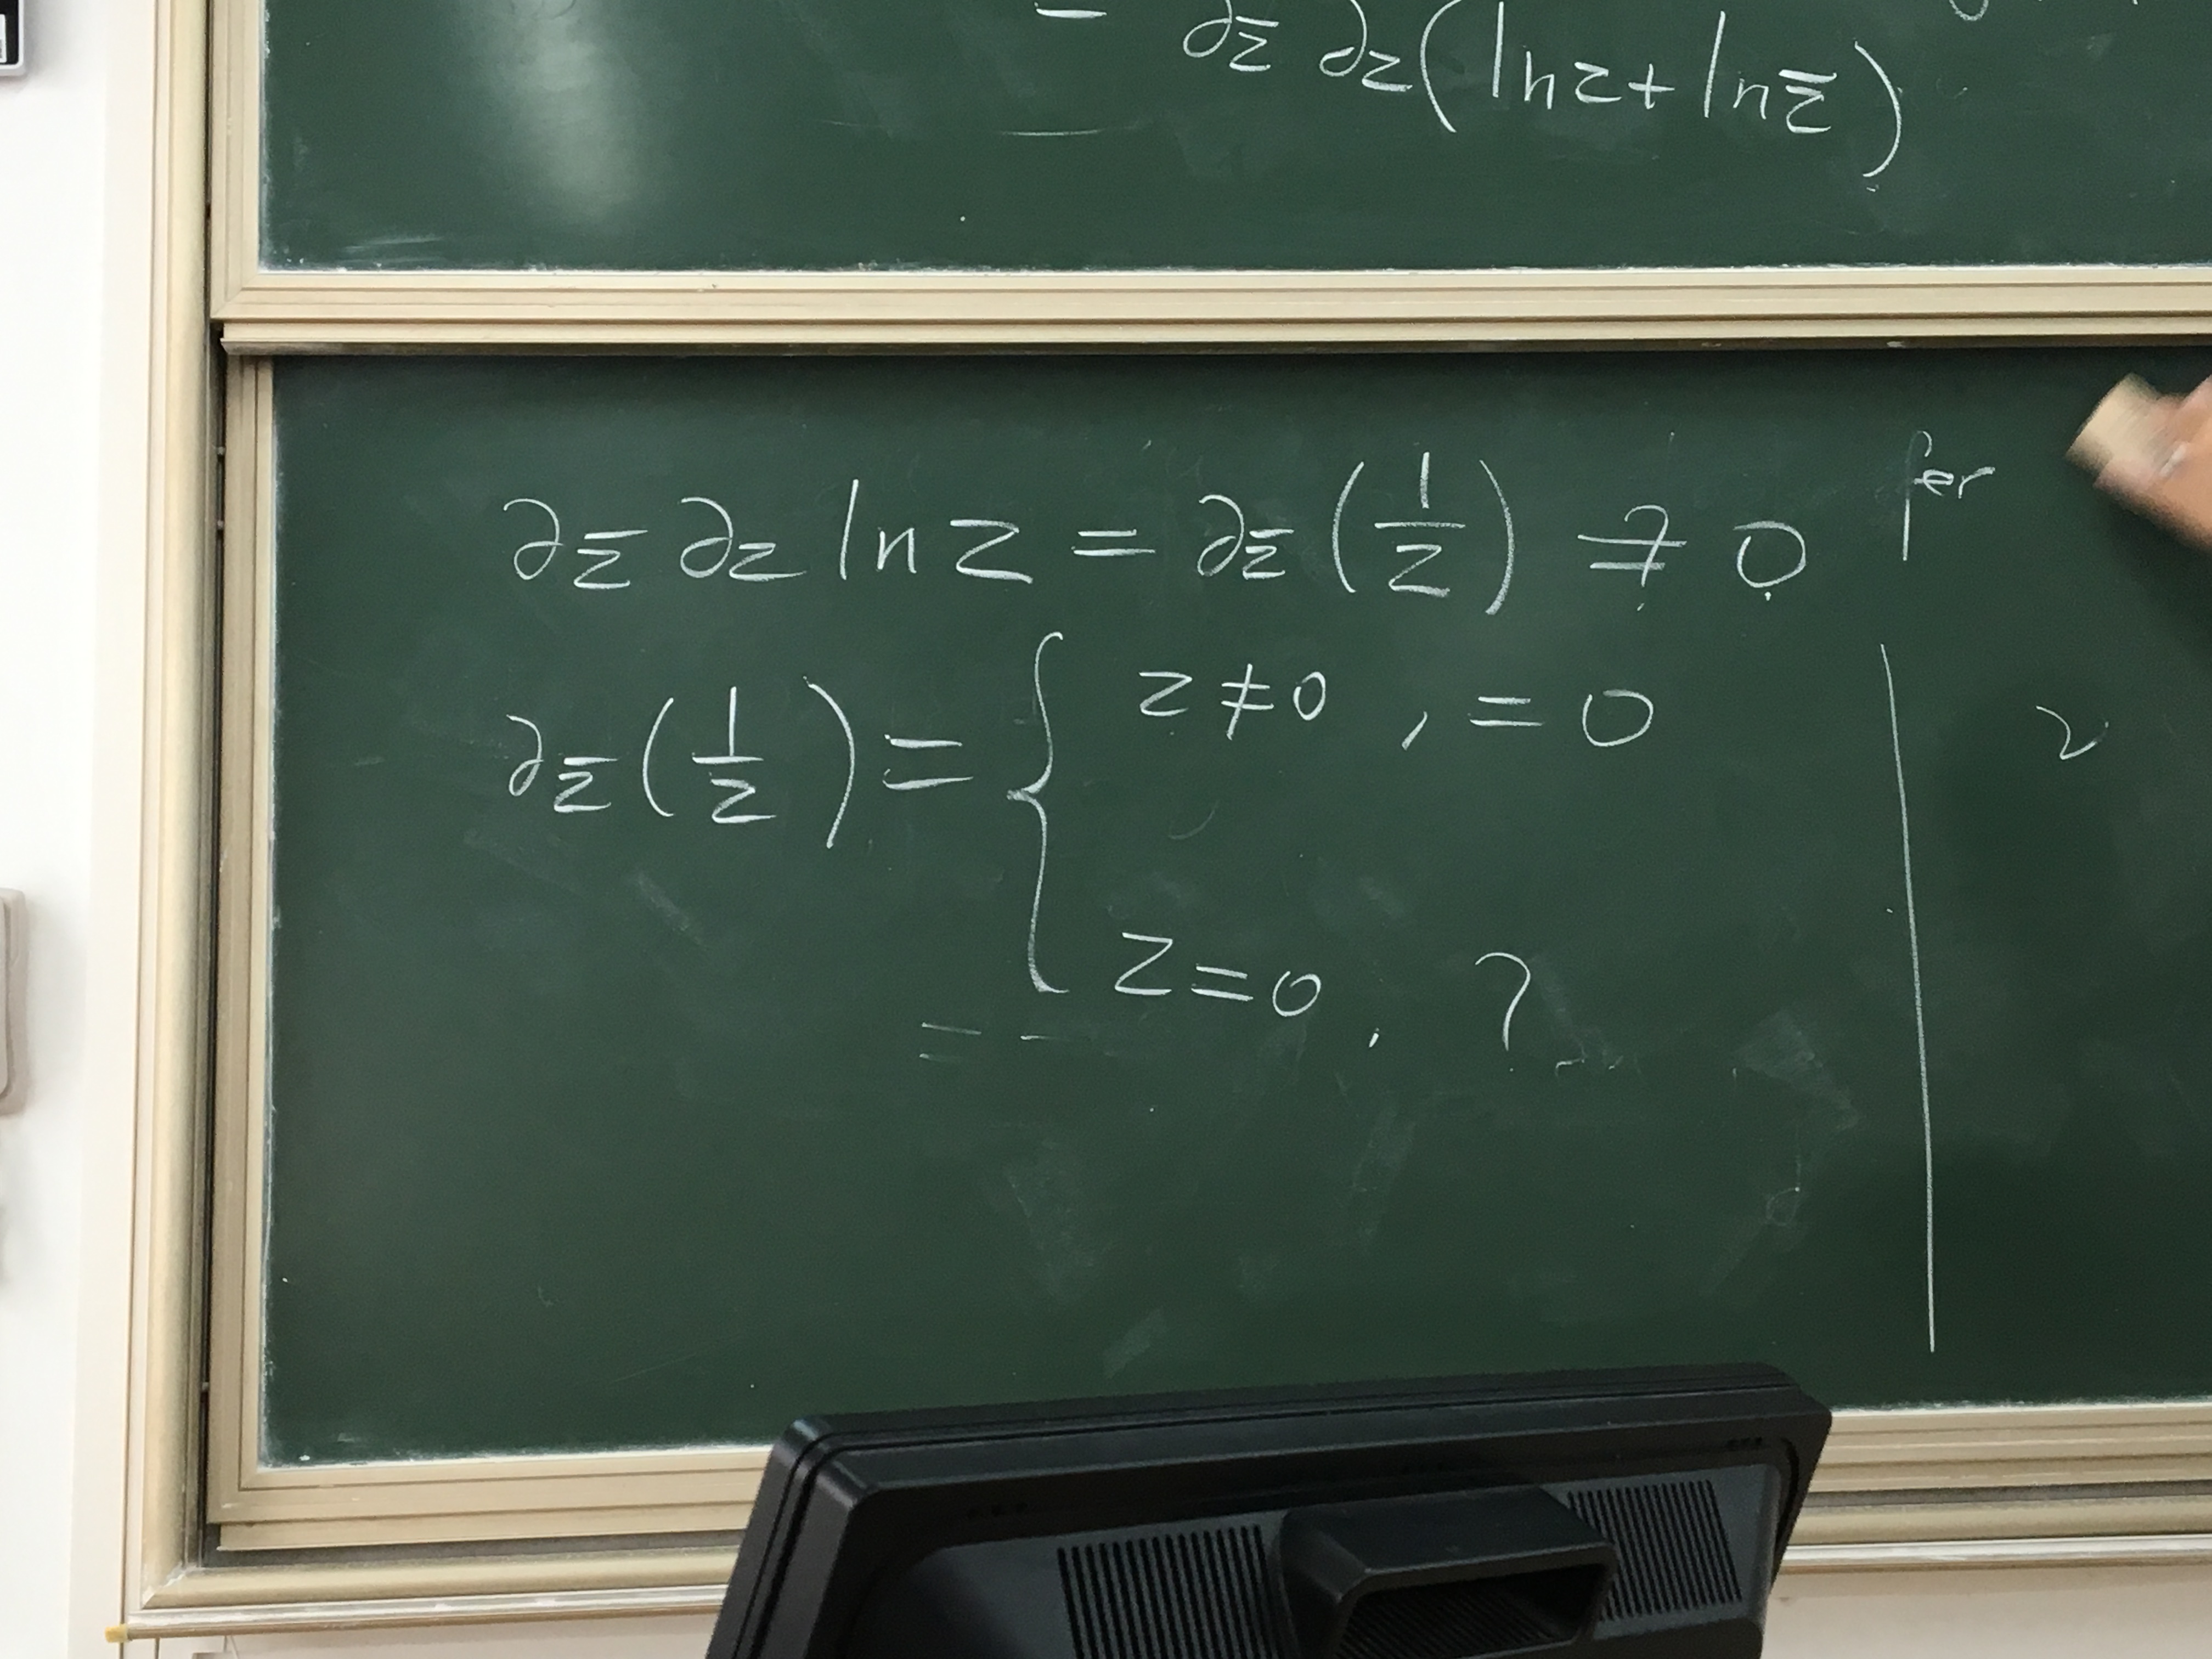 = ∂z̄ ∂z (ln z + ln z̄)
∂z̄ ∂z ln z = ∂z̄ (1/z) ≟ 0 for
∂z̄ (1/z) = { z ≠ 0 , = 0
z = 0 , ?
= -